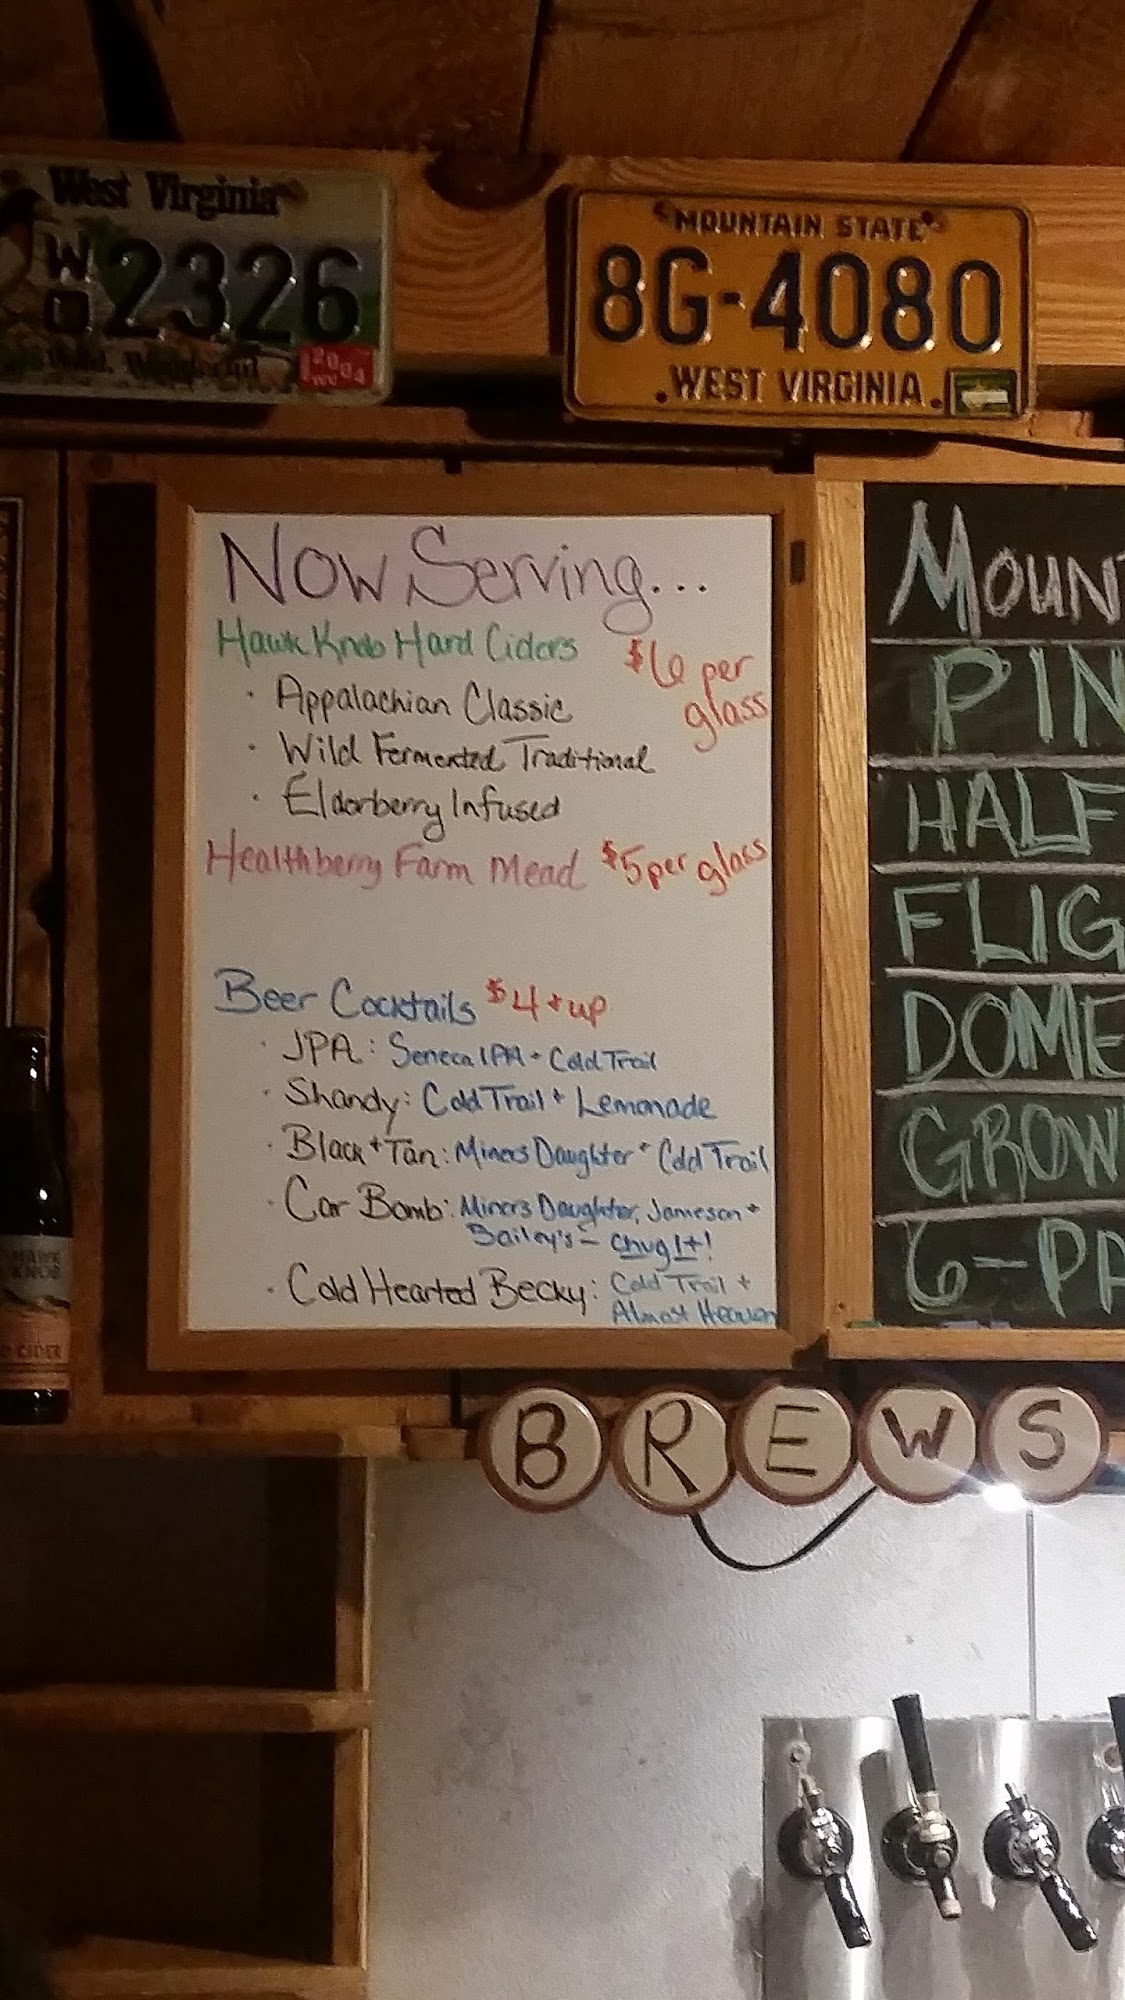 West Virginia
WO 2326
Wild, Wonderful
2004
MOUNTAIN STATE
8G-4080
WEST VIRGINIA
Now Serving...
Hawk Knob Hard Ciders $6 per glass
· Appalachian Classic
· Wild Fermented Traditional
· Elderberry Infused
Healthberry Farm Mead $5 per glass
Beer Cocktails $4 + up
· JPA: Seneca IPA + Cold Trail
· Shandy: Cold Trail + Lemonade
· Black + Tan: Miners Daughter + Cold Trail
· Car Bomb: Miners Daughter, Jameson +
Bailey's - Chug It!
· Cold Hearted Becky: Cold Trail +
Almost Heaven
MOUN
PIN
HALF
FLIG
DOME
GROW
6-PA
HAWK
KNOB
CIDER
BREWS